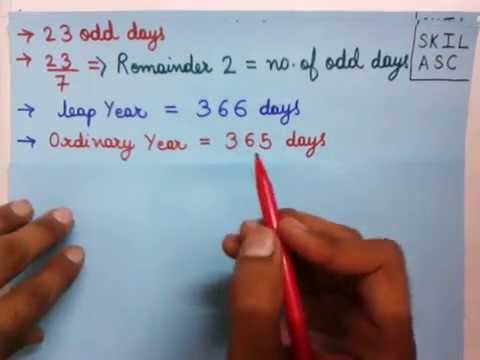 → 23 odd days
→ 23/7 => Remainder 2 = no. of odd days
→ leap Year = 366 days
→ Ordinary Year = 365 days
SKIL
ASC